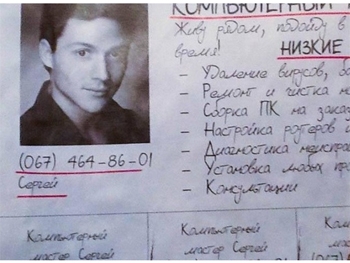 КОМПЬЮТЕРНЫЙ
Живу рядом, подойду в
время! НИЗКИЕ
– Удаление вирусов,
– Ремонт и чистка
– Сборка ПК на заказ
– Настройка роутеров и
– Диагностика
– Установка любых
– Консультации
(067) 464-86-01
Сергей
Компьютерный
мастер Сергей
Компьютерный
мастер Сергей
(067)